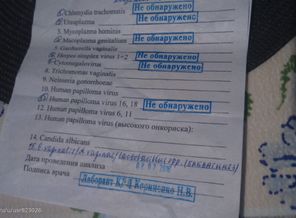 Chlamydia trachomatis Не обнаружено
2. Ureaplasma Не обнаружено
3. Mycoplasma hominis
4. Mycoplasma genitalium Не обнаружено
5. Gardnerella vaginalis
6. Herpes simplex virus 1+2 Не обнаружено
7. Cytomegalovirus Не обнаружено
8. Trichomonas vaginalis
9. Neisseria gonorrhoeae
10. Human papilloma virus
11. Human papilloma virus 16, 18 Не обнаружено
12. Human papilloma virus 6, 11
13. Human papilloma virus (высокого онкориска):
14. Candida albicans
Дата проведения анализа
Подпись врача Лаборант КДЛ Корниенко Н.В.